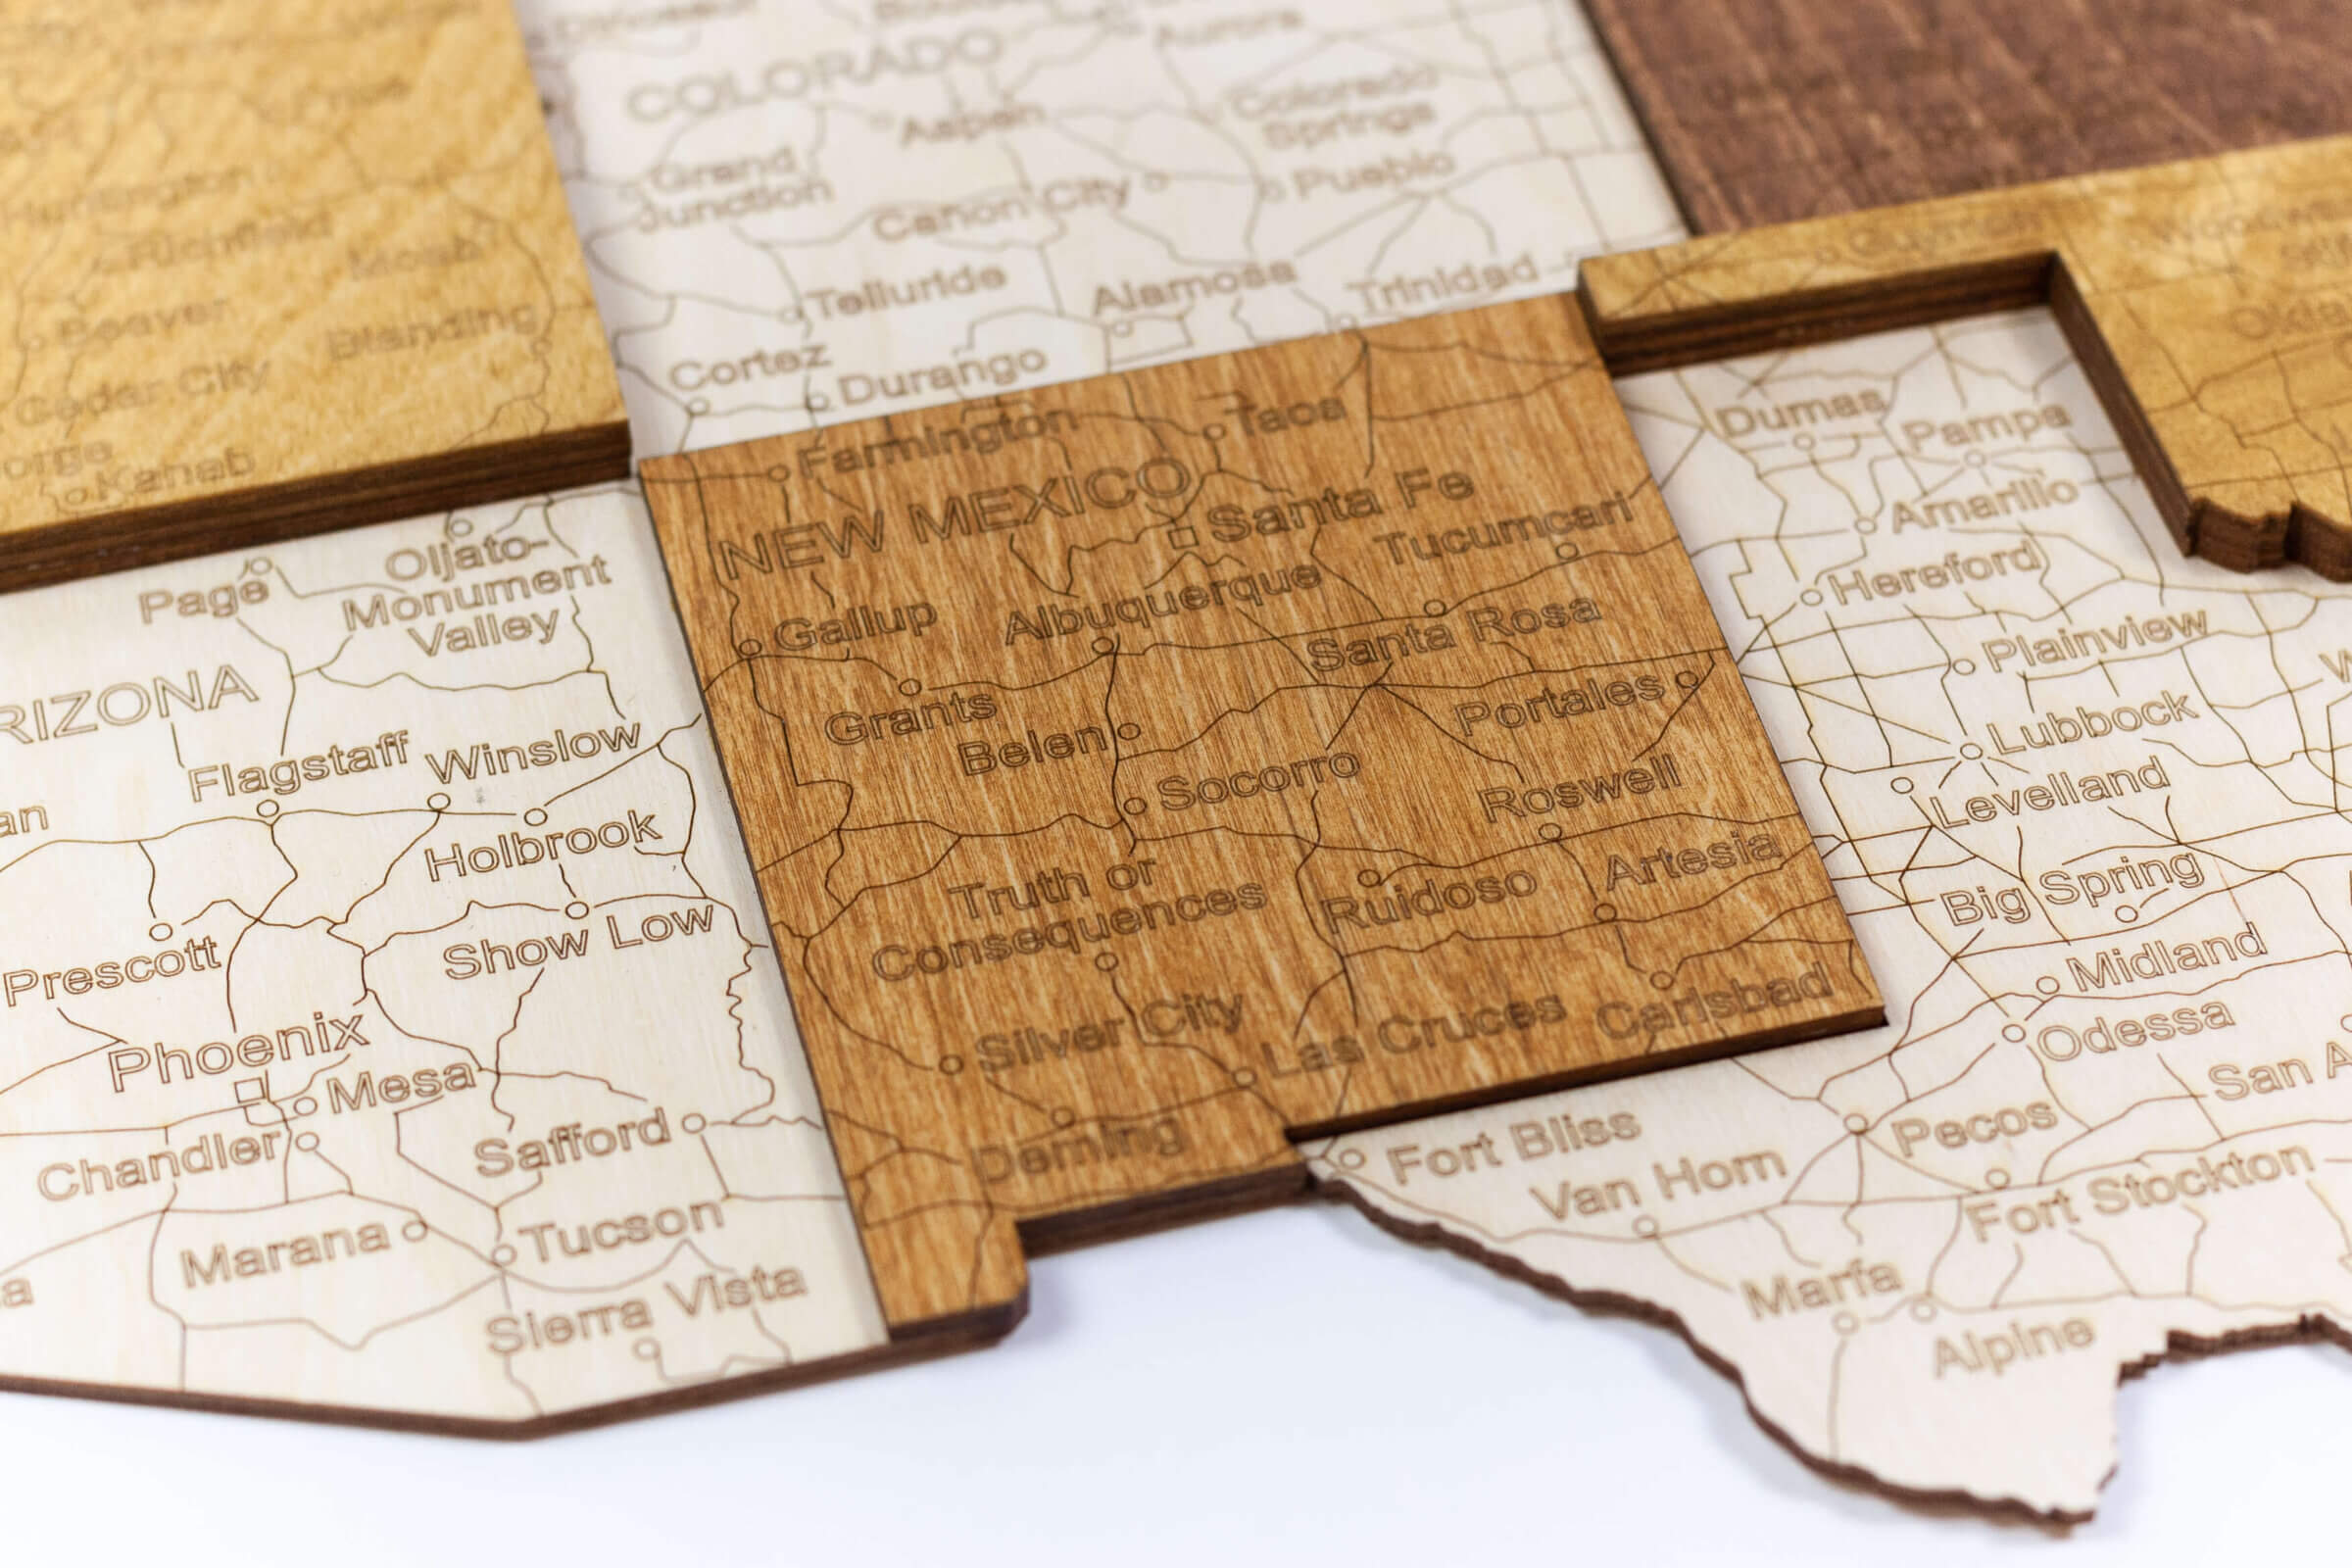 COLORADO
Aurora
Aspen
Colorado
Springs
Grand
Junction
Canon City
Pueblo
Telluride
Alamosa
Trinidad
Cortez
Durango
Richfield
Moab
Beaver
Blanding
Cedar City
orge
Kanab
Page
Oljato-
Monument
Valley
RIZONA
Flagstaff
Winslow
an
Holbrook
Prescott
Show Low
Phoenix
Mesa
Chandler
Safford
Marana
Tucson
a
Sierra Vista
Farmington
Taos
NEW MEXICO
Santa Fe
Tucumcari
Gallup
Albuquerque
Santa Rosa
Grants
Belen
Portales
Socorro
Roswell
Truth or
Consequences
Ruidoso
Artesia
Silver City
Las Cruces
Carlsbad
Deming
Dumas
Pampa
Amarillo
Hereford
Plainview
W
Lubbock
Levelland
Big Spring
Midland
Odessa
San A
Fort Bliss
Pecos
Van Horn
Fort Stockton
Marfa
Alpine